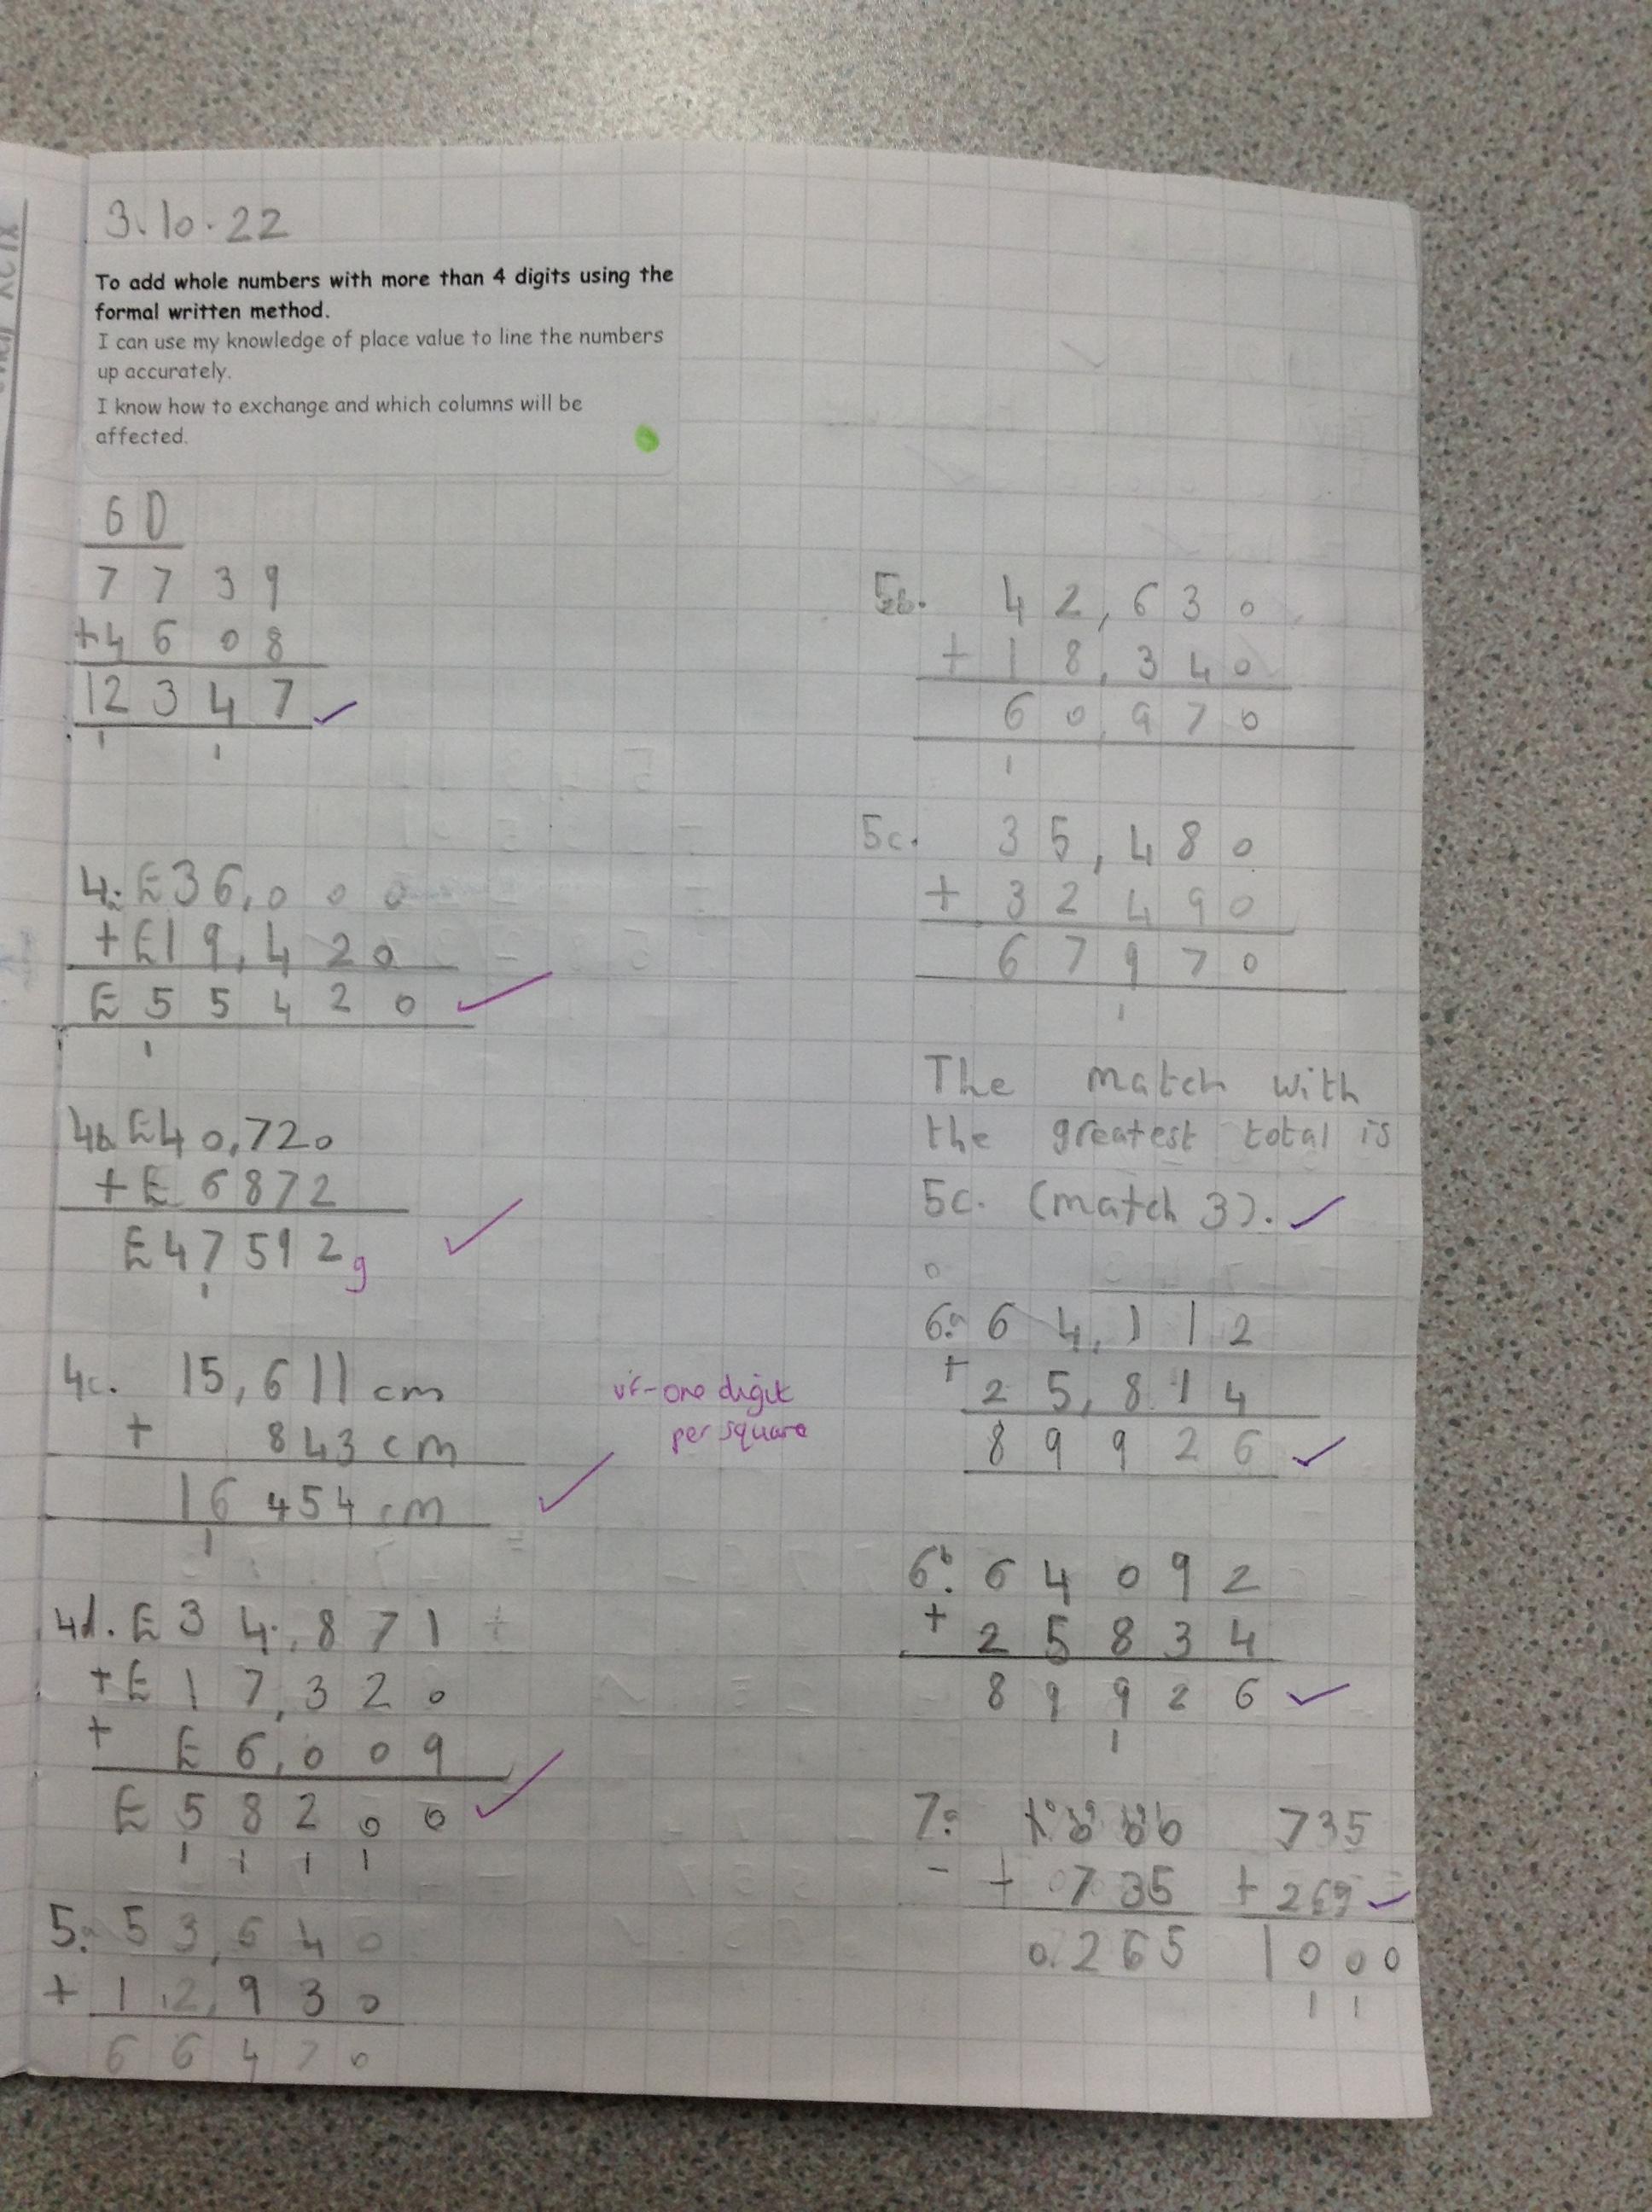 3.10.22
To add whole numbers with more than 4 digits using the
formal written method.
I can use my knowledge of place value to line the numbers
up accurately.
I know how to exchange and which columns will be
affected.
6D
7 7 3 9
+4 6 0 8
12 3 4 7
1 1
4. £36,0 0 0
+£19,4 2 0
£ 5 5 4 2 0
1
4b £40,720
+£ 6872
£47592g
1
4c. 15,611 cm
+ 843 cm
16 454 cm
1
vf-one digit
per square
4d. £3 4,8 7 1
+£ 1 7,3 2 0
+ £ 6,0 0 9
£ 5 8 2 0 0
1 1 1 1
5. 5 3,6 4 0
+ 1 2,9 3 0
6 6 4 7 0
5b. 4 2,6 3 0
+ 1 8,3 4 0
6 0,9 7 0
1
5c. 3 5,4 8 0
+ 3 2 4 9 0
6 7 9 7 0
1
The match with
the greatest total is
5c. (match 3).
6a 6 4,1 1 2
+ 2 5,8 1 4
8 9 9 2 6
6b. 6 4 0 9 2
+ 2 5 8 3 4
8 9 9 2 6
1
7.
735
- + 735
+ 269
0.265
1 0 0 0
1 1